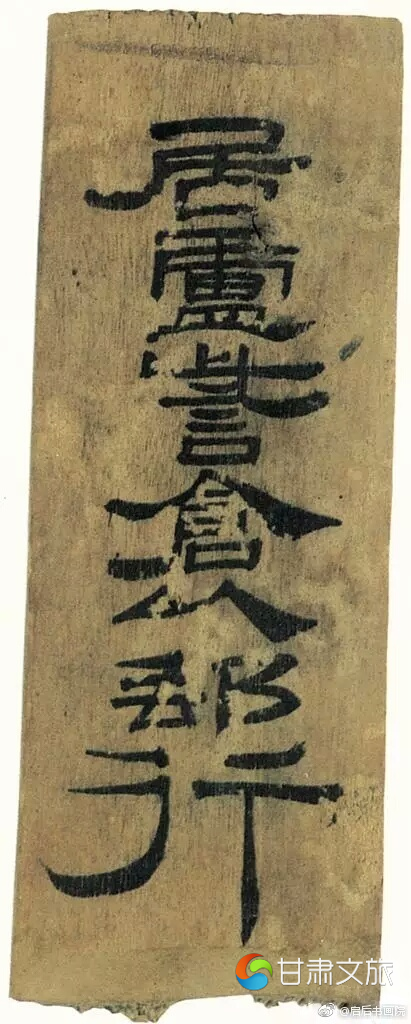 居盧訾倉以郵行
甘肃文旅
@启后书画院